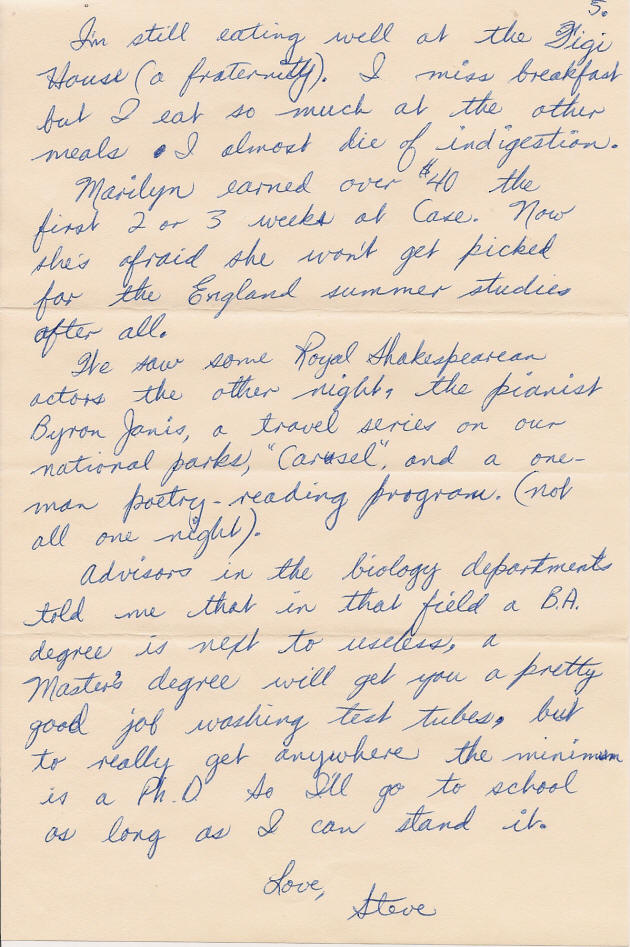 5.
I'm still eating well at the Figi
House (a fraternity). I miss breakfast
but I eat so much at the other
meals . I almost die of indigestion.
Marilyn earned over $40 the
first 2 or 3 weeks at Case. Now
she's afraid she won't get picked
for the England summer studies
after all.
We saw some Royal Shakespearean
actors the other night, the pianist
Byron Janis, a travel series on our
national parks, "Carusel", and a one-
man poetry-reading program. (not
all one night).
Advisors in the biology departments
told me that in that field a B.A.
degree is next to useless, a
Master's degree will get you a pretty
good job washing test tubes, but
to really get anywhere the minimum
is a Ph.D. So I'll go to school
as long as I can stand it.
Love,
Steve